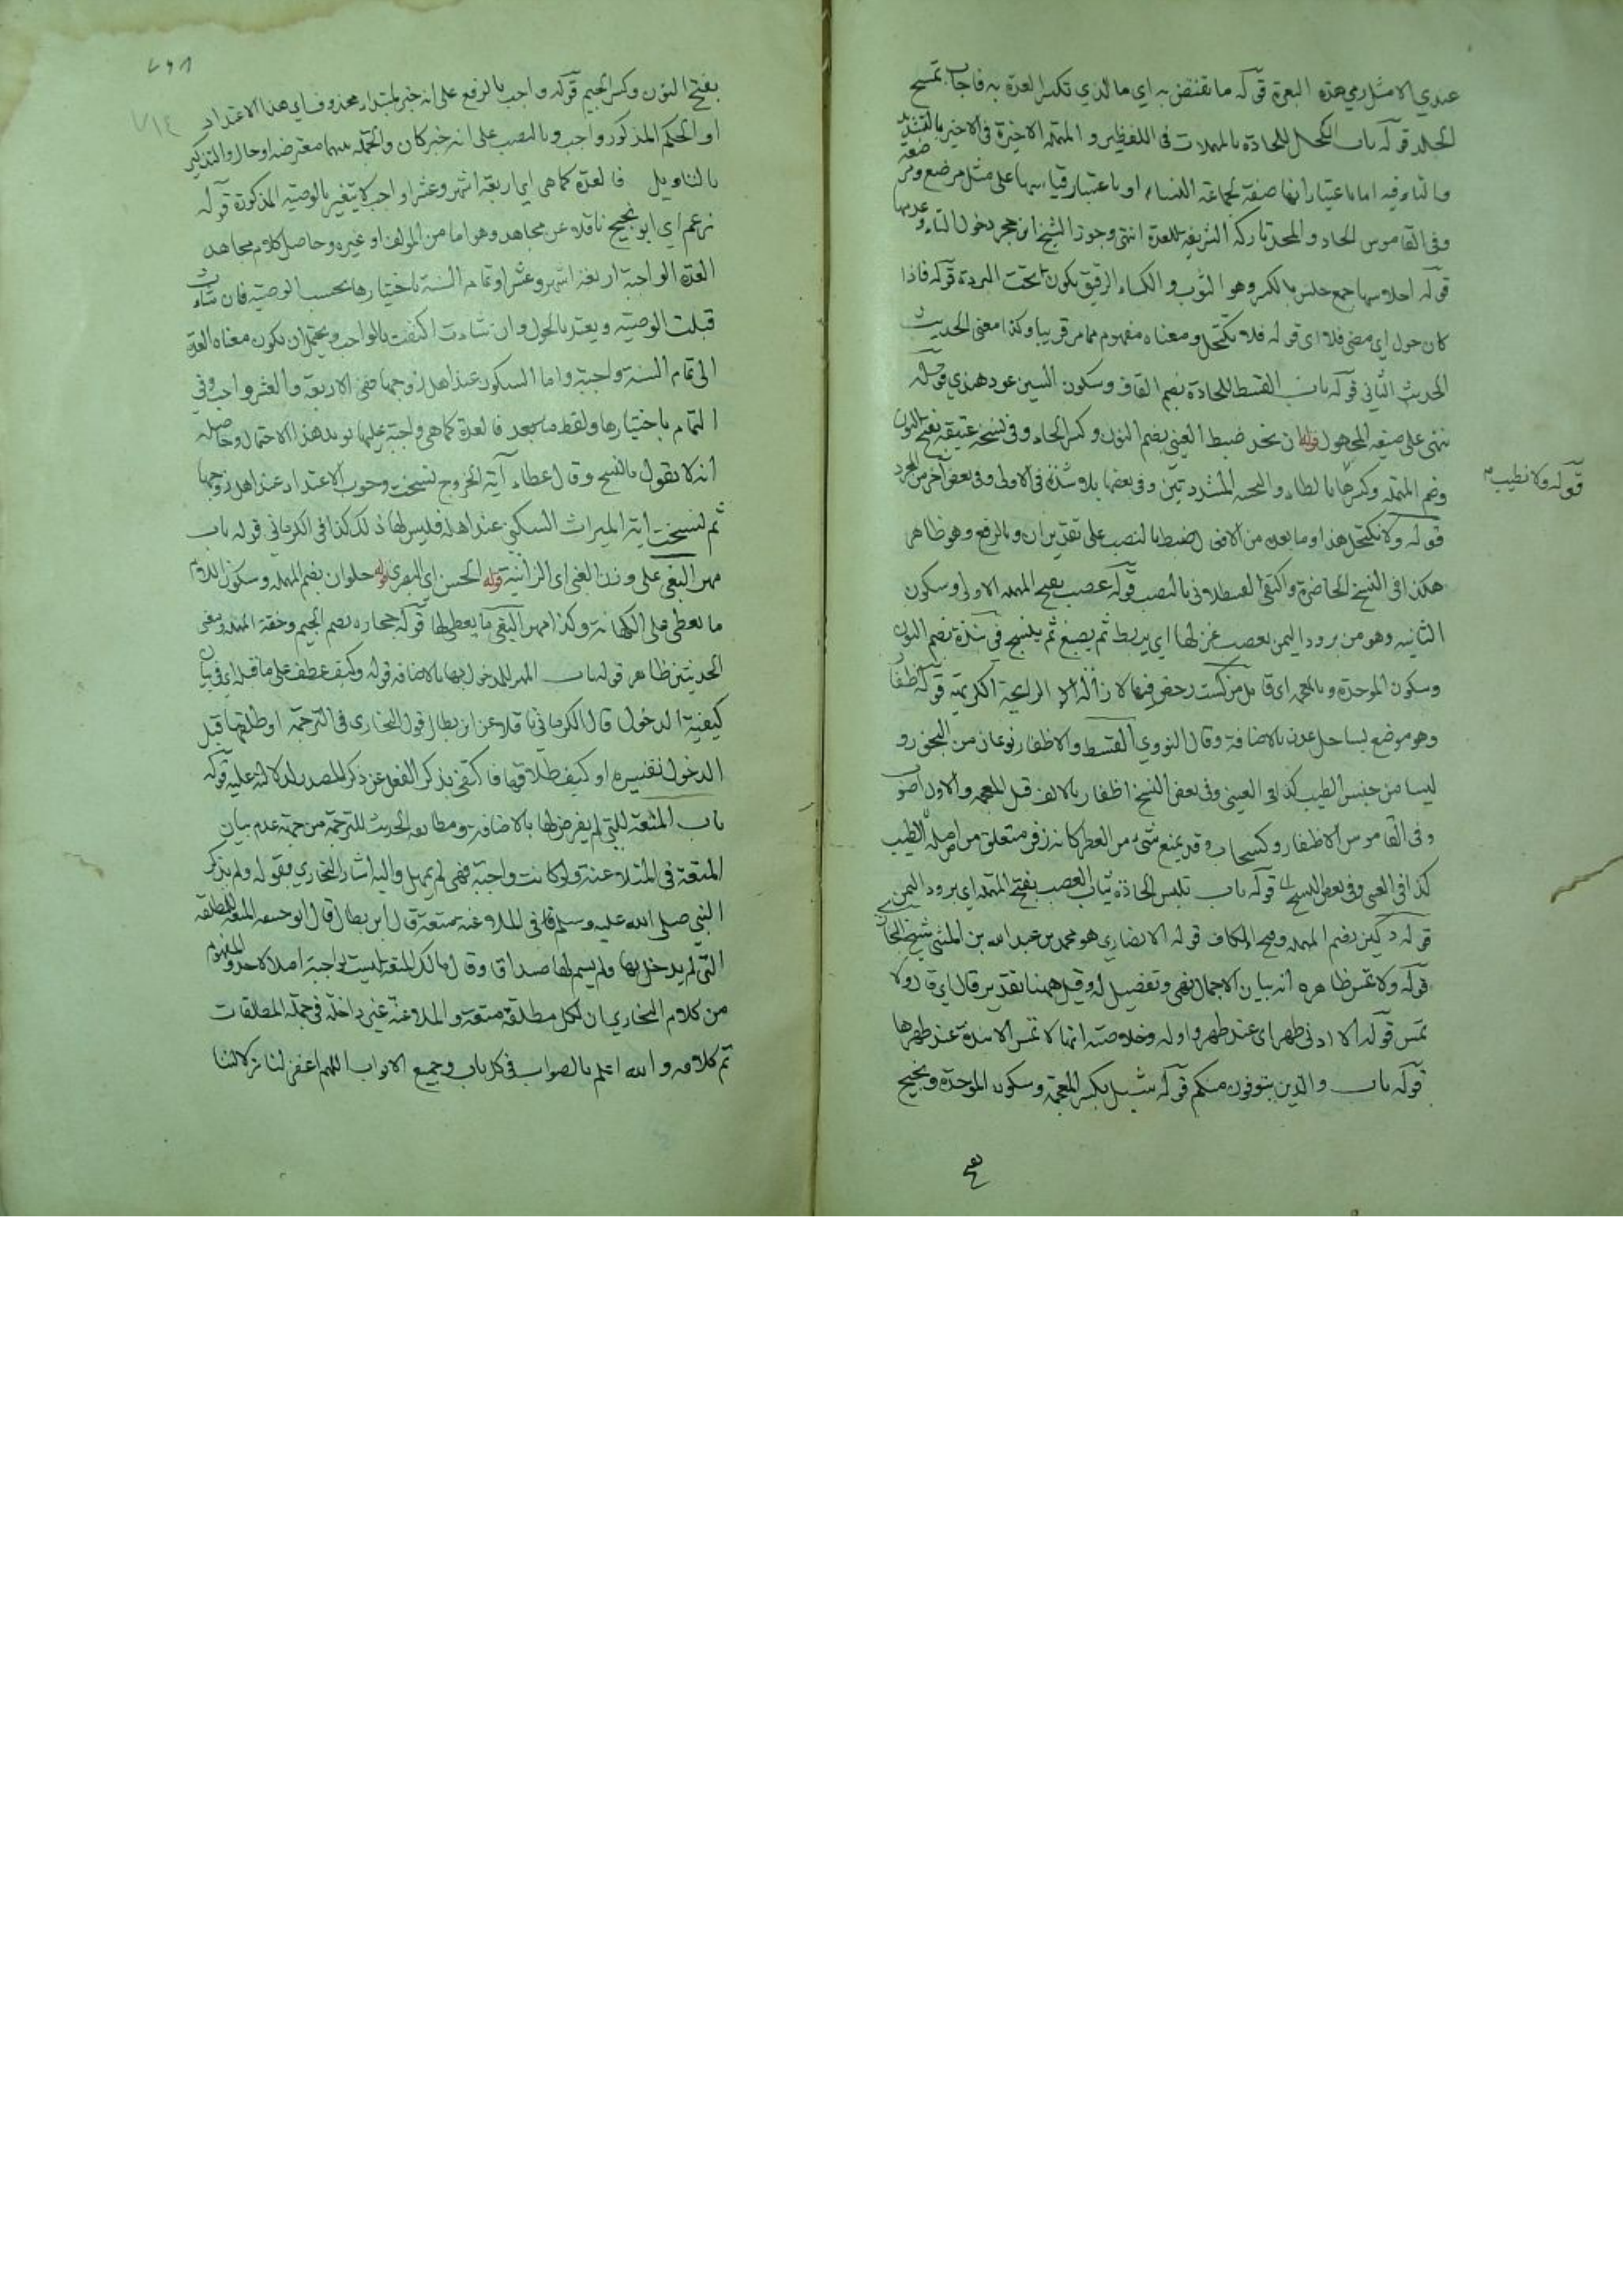 عندي الا مثل رمي هذه البعرة قوله ما تفتض به اي ما الذي تكسر العدة به فاجاب تمسح
الجلد قوله باب الكحل للحادة بالمهملات في اللفظين و المهملة الاخيرة في الاخير بالتشديد
والتاء فيه اما باعتبار انها صفة لجماعة النساء او باعتبار قياسها على مثل مرضع ومرضعة
وفي القاموس الحاد والمحد تاركة الزينة للعدة انتهى وجوز الشيخ ابن حجر دخول التاء وعدمها
قوله احلاسها جمع حلس بالكسر وهو الثوب و الكساء الرقيق يكون تحت البردعة قوله فاذا
كان حول اي مضى فلا اي قوله فلا تكتحل ومعناه مفهوم مما مر قريبا وكذا معنى الحديث
الحديث الثاني قوله باب القسط للحادة بضم القاف وسكون السين عود هندي قوله
ننهى على صيغة المجهول قوله ان نحد ضبط العيني بضم النون وكسر الحاء وفي نسخة عتيقة بفتح النون
وضم المهملة وكسرها
قوله ولا نطيب
قوله ولا نكتحل هذا وما بعده من الافعال ضبط بالنصب على تقدير ان وبالرفع وهو ظاهر
هكذا في النسخ الحاضرة واكتفى القسطلاني بالنصب قوله عصب بفتح المهملة الاولى وسكون
الثانية وهو من برود اليمن يعصب غزلها اي يربط ثم يصبغ ثم ينسج في نبذة بضم النون
وسكون الموحدة وبالمعجمة اي قليل من كست رخص فيها لازالة الرايحة الكريهة قوله ظفار
وهو موضع بساحل عدن بالاضافة وقال النووي القسط والاظفار نوعان من البخور و
ليسا من جنس الطيب كذا في العيني وفي بعض النسخ اظفار بالالف قبل المعجمة والاول اصوب
وفي القاموس الاظفار وكسحاب وقد يمنع شيء من العطر كانه ظفر مقتلع من اصله الطيب
كذا في العيني وفي بعض النسخ قوله باب تلبس الحادة ثياب العصب بفتح المهملة اي برود اليمن
قوله دكين بضم المهملة وفتح الكاف قوله الانصاري هو محمد بن عبد الله بن المثنى شيخ البخاري
قوله ولا تمس ظاهره انه بيان لاجمال نهى وتفصيل له وقيل ههنا تقدير قال اي قال ولا
تمس قوله الا ادنى طهر اي عند طهر واوله وخلاصته انها لا تمس الا نبذة عند طهرها
قوله باب والذين يتوفون منكم قوله شبل بكسر المعجمة وسكون الموحدة ونجيح
بفتح النون وكسر الجيم قوله واجب بالرفع على انه خبر لمبتداء محذوف اي هذا الاعتداد
او الحكم المذكور واجب وبالنصب على انه خبر كان والجملة بينهما معترضة او حال والتذكير
بالتاويل فالعدة كما هي اي اربعة اشهر وعشرا واجب لا يتغير بالوصية المذكورة قوله
زعم اي ابو نجيح ناقلا عن مجاهد وهو اما من المؤلف او غيره وحاصل كلام مجاهد
العدة الواجبة اربعة اشهر وعشرا وتمام السنة باختيارها بحسب الوصية فان شاءت
قبلت الوصية ويعتد بالحول وان شاءت اكتفت بالواجب ويحتمل ان يكون معناه العدة
الى تمام السنة واجبة واما السكون عند اهل زوجها ففي الاربعة والعشر واجب وفي
التمام باختيارها ولفظ ما بعد فالعدة كما هي واجبة عليها يؤيد هذا الاحتمال وحاصله
انه لا يقول بالنسخ وقال عطاء آية الخروج نسخت وجوب الاعتداد عند اهل زوجها
ثم نسخت اية الميراث السكنى عند اهله فليس لها ذلك كذا في الكرماني قوله باب
مهر البغي على وزن الغني اي الزانية قوله الحسن اي البصري قوله حلوان بضم المهملة وسكون اللام
ما يعطى على الكهانة وكذا مهر البغي ما يعطى لها قوله جحادة بضم الجيم وخفة المهملة ومعنى
الحديثين ظاهر قوله باب المهر للمدخول بها بالاضافة قوله وكيف عطف على ما قبله اي في بيان
كيفية الدخول قال الكرماني ناقلا عن ابن بطال قول البخاري في الترجمة او طلقها قبل
الدخول تفسيره او كيف طلاقها فاكتفى بذكر الفعل عن ذكر المصدر لدلالته عليه قوله
باب المتعة للتي لم يفرض لها بالاضافة ومطابقة الحديث للترجمة من جهة عدم بيان
المتعة في الملاعنة ولو كانت واجبة فهي لم يهمل واليه اشار البخاري بقوله ولم يذكر
النبي صلى الله عليه وسلم في الملاعنة متعة قال ابن بطال قال ابو حنيفة المتعة للمطلقة
التي لم يدخل بها ولم يسم لها صداق وقال مالك المتعة ليست بواجبة اصلا لاحد والمفهوم
من كلام البخاري ان لكل مطلقة متعة والملاعنة غير داخلة في جملة المطلقات
تم كلامه و الله اعلم بالصواب في كل باب وجميع الابواب اللهم اغفر لنا زلاتنا